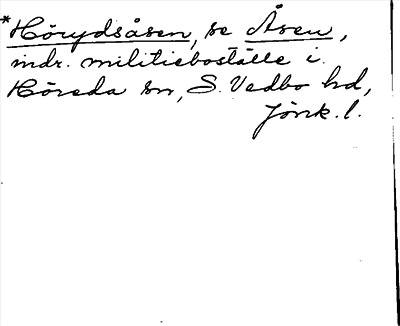 *Hörydsåsen, se Åsen,
mdr. militieboställe i
Höreda sn, S. Vedbo hd,
Jönk. l.